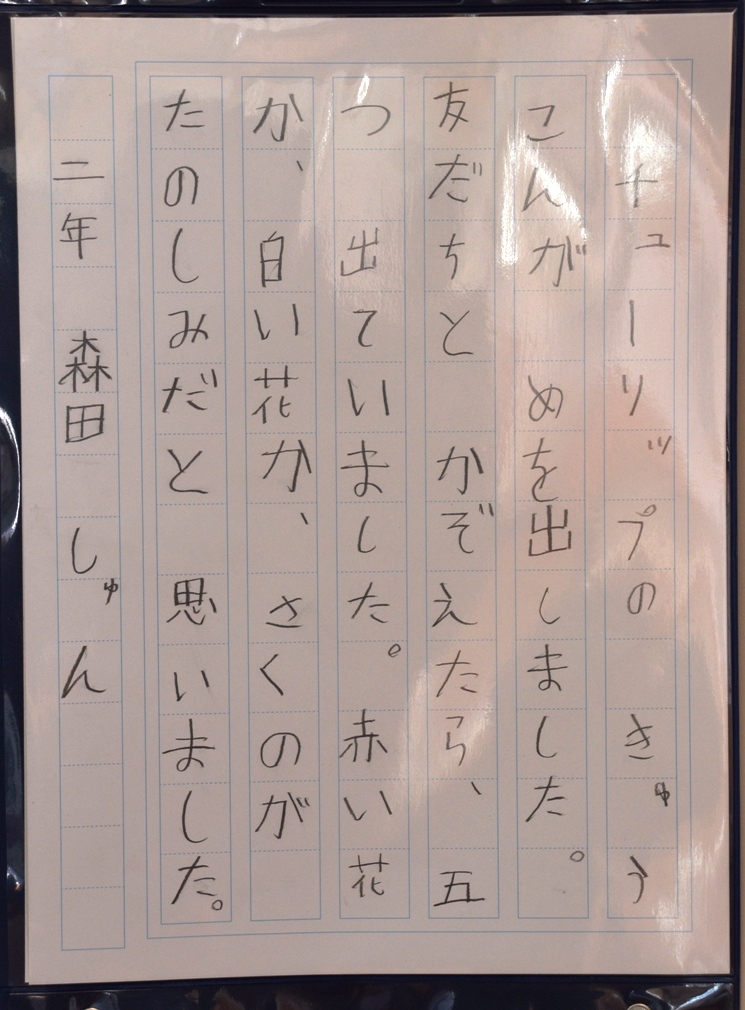 チューリップの きゅう
こんが めを出しました。
友だちと かぞえたら、 五
つ 出ていました。 赤い花
か、 白い花か、 さくのが
たのしみだと 思いました。
二年 森田 しゅん